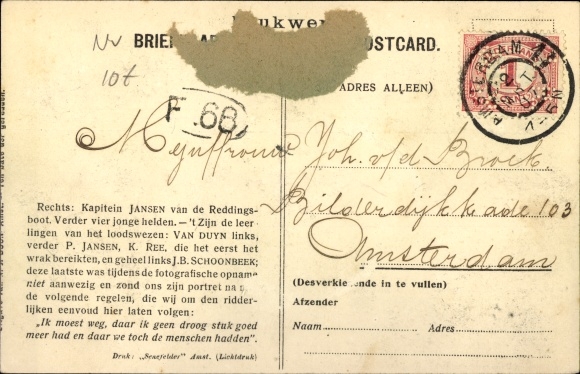 Drukwerk
BRIEFKAART POSTCARD.
ADRES ALLEEN)
Nv
10t
F .68
AMSTERDAM
Mejuffrouw Joh. v/d Broek
Bilderdijkkade 103
Amsterdam
(Desverkie ende in te vullen)
Afzender
Naam Adres
Rechts: Kapitein JANSEN van de Reddings-
boot. Verder vier jonge helden. — 't Zijn de leer-
lingen van het loodswezen: VAN DUYN links,
verder P. JANSEN, K. REE, die het eerst het
wrak bereikten, en geheel links J.B. SCHOONBEEK;
deze laatste was tijdens de fotografische opname
niet aanwezig en zond ons zijn portret na
de volgende regelen, die wij om den ridder-
lijken eenvoud hier laten volgen:
„Ik moest weg, daar ik geen droog stuk goed
meer had en daar we toch de menschen hadden".
Druk: „Senefelder" Amst. (Lichtdruk)